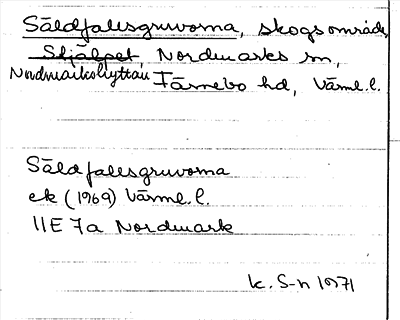 Såldfallsgruvorna, skogsområde,
Skjälpet, Nordmarks sn,
Nordmarkshyttan Färnebo hd, Värml.l.
Såldfallsgruvorna
ek (1969) Värml.l.
11E 7a Nordmark
k. S-n 1971